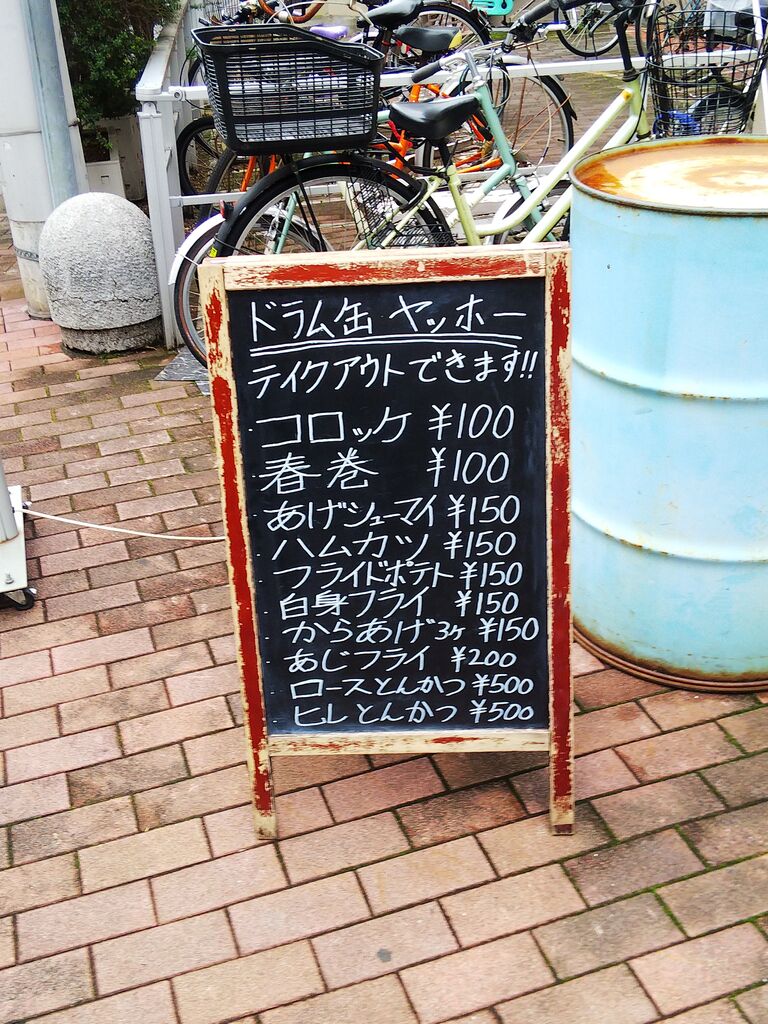 ドラム缶 ヤッホー
テイクアウトできます!!
コロッケ ¥100
春巻 ¥100
あげシューマイ ¥150
ハムカツ ¥150
フライドポテト ¥150
白身フライ ¥150
からあげ3ヶ ¥150
あじフライ ¥200
ロースとんかつ ¥500
ヒレとんかつ ¥500